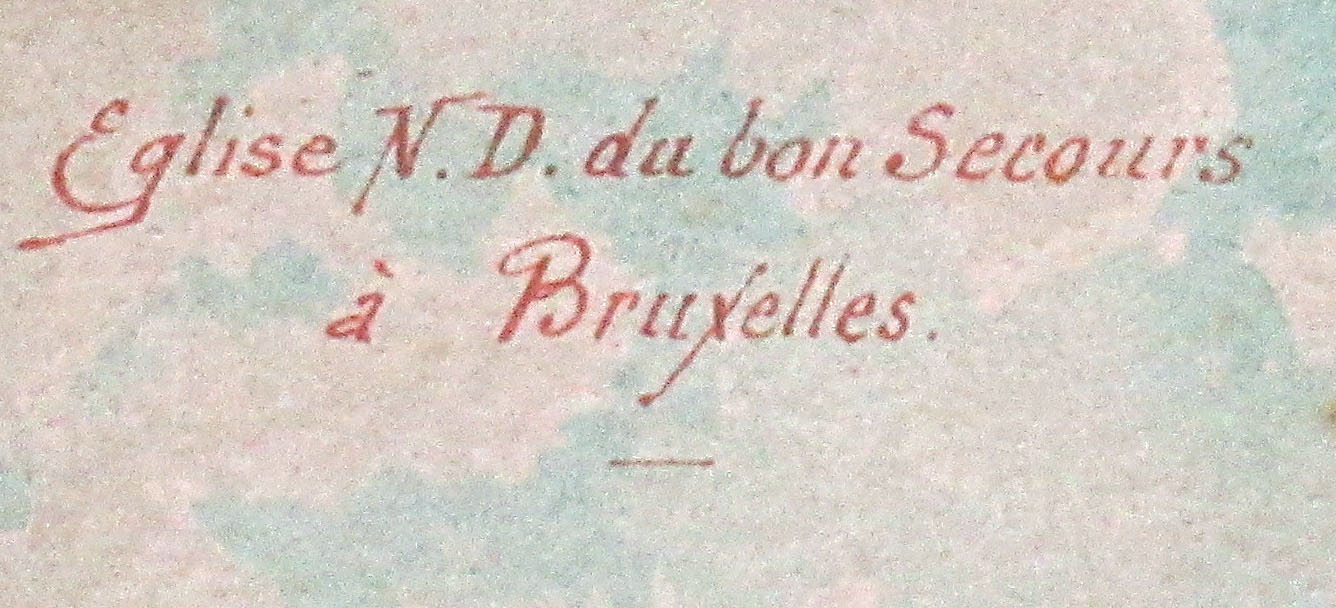 Eglise N.D. du bon Secours
à Bruxelles.